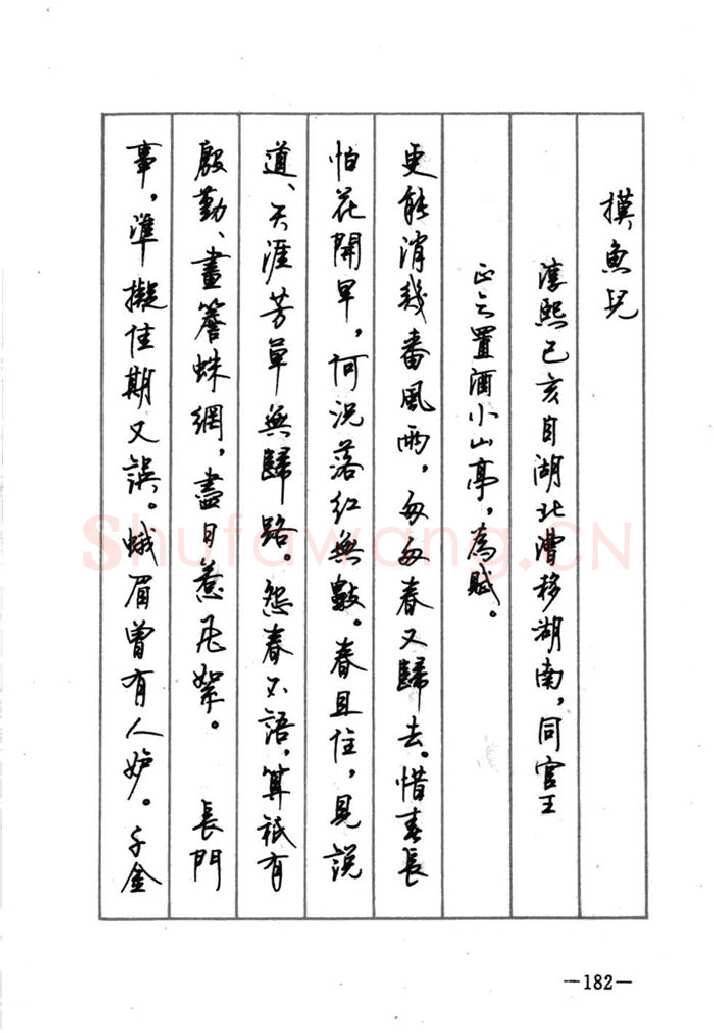 摸魚兒
淳熙己亥自湖北漕移湖南，同官王
正之置酒小山亭，為賦。
更能消幾番風雨，匆匆春又歸去。惜春長
怕花開早，何況落紅無數。春且住，見說
道、天涯芳草無歸路。怨春不語，算祇有
殷勤、畫簷蛛網，盡日惹飛絮。 長門
事，準擬佳期又誤。蛾眉曾有人妒。千金
Shufawang.CN
—182—